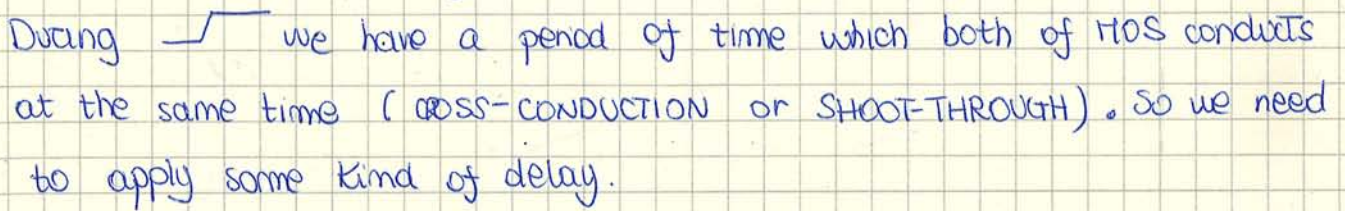 During we have a period of time which both of MOS conducts
at the same time (CROSS-CONDUCTION or SHOOT-THROUGH). So we need
to apply some kind of delay.